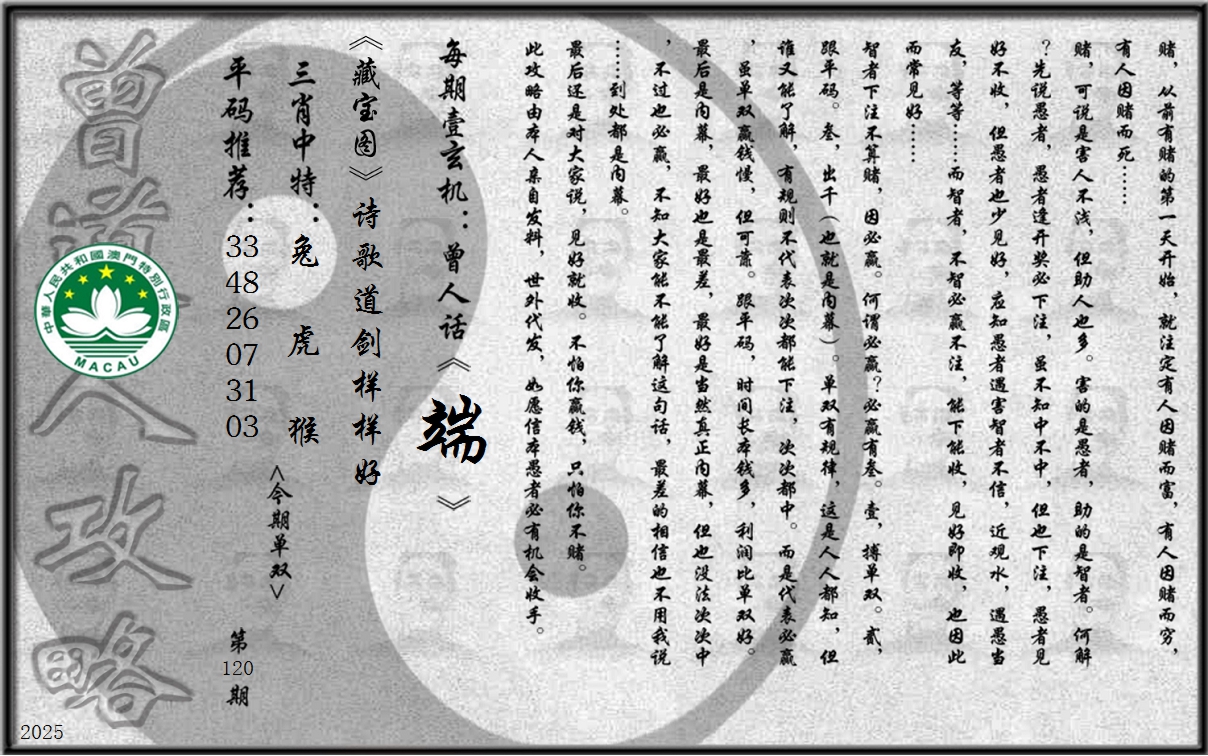 赌，从前有赌的第一天开始，就注定有人因赌而富，有人因赌而穷，
有人因赌而死……
赌，可说是害人不浅，但助人也多。害的是愚者，助的是智者。何解
？先说愚者，愚者逢开奖必下注，虽不知中不中，但也下注，愚者见
好不收，但愚者也少见好，应知愚者遇害智者不信，近观水，遇愚当
友，等等……而智者，不智必赢不注，能下能收，见好即收，也因此
而常见好……
智者下注不算赌，因必赢。何谓必赢？必赢有叁。壹，搏单双。贰，
跟平码。叁，出千（也就是内幕）。单双有规律，这是人人都知，但
谁又能了解，有规则不代表次次都能下注，次次都中。而是代表必赢
，虽单双赢钱慢，但可靠。跟平码，时间长本钱多，利润比单双好。
最后是内幕，最好也是最差，最好是当然真正内幕，但也没法次次中
，不过也必赢，不知大家能不能了解这句话，最差的相信也不用我说
……到处都是内幕。
最后还是对大家说，见好就收。不怕你赢钱，只怕你不赌。
此攻略由本人亲自发料，世外代发，如愿信本愚者必有机会收手。
每期壹玄机：曾人话《端》
《藏宝图》诗歌道剑样样好
三肖中特：兔 虎 猴
<今期单双>
平码推荐：33 48 26 07 31 03
第120期
曾道人攻略
中華人民共和國澳門特別行政區
MACAU
2025